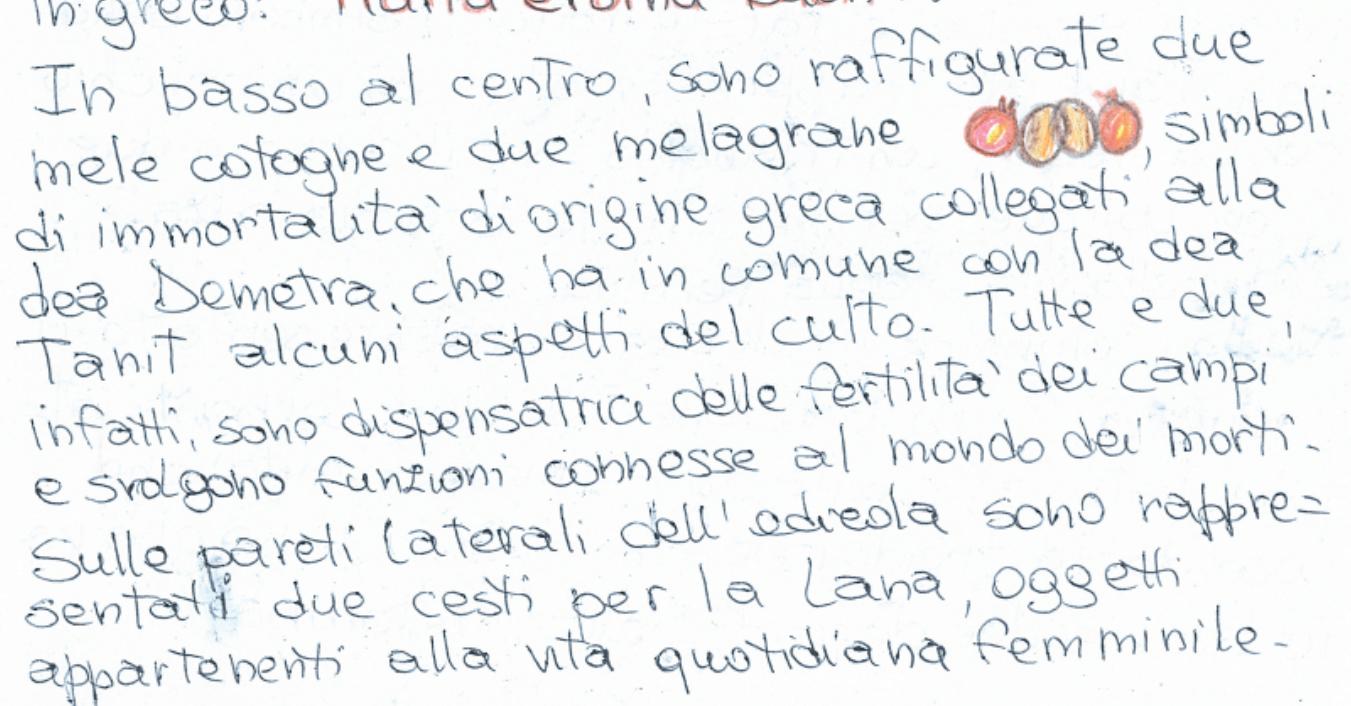 in greco:
In basso al centro, sono raffigurate due
mele cotogne e due melagrane , simboli
di immortalità di origine greca collegati alla
dea Demetra, che ha in comune con la dea
Tanit alcuni aspetti del culto. Tutte e due,
infatti, sono dispensatrici delle fertilità dei campi
e svolgono funzioni connesse al mondo dei morti.
Sulle pareti laterali dell'edicola sono rappre=
sentati due cesti per la lana, oggetti
appartenenti alla vita quotidiana femminile.